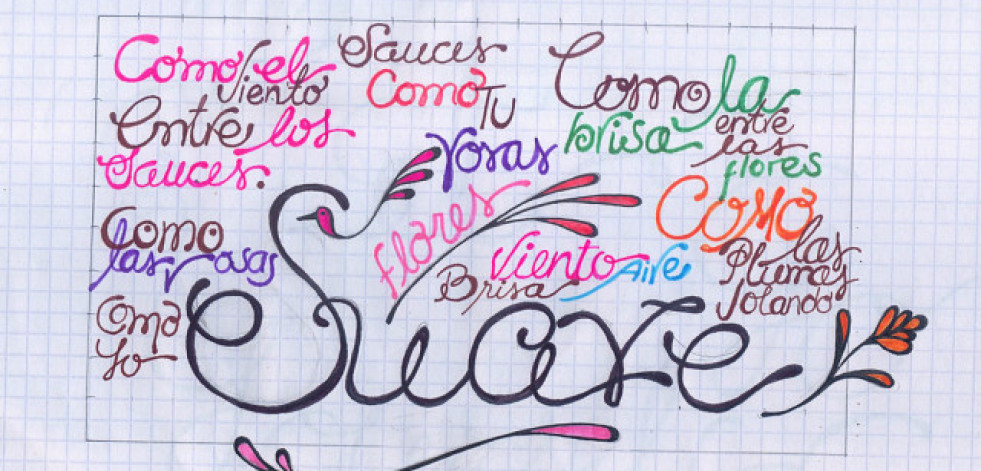 Como el
viento
Entre los
Sauces.
Sauces
Como Tu
Como la
brisa
entre
las
flores
rosas
flores
Como
las rosas
Viento
Aire
Brisa
Como
las
Plumas
Volando
Como
Yo
Suave